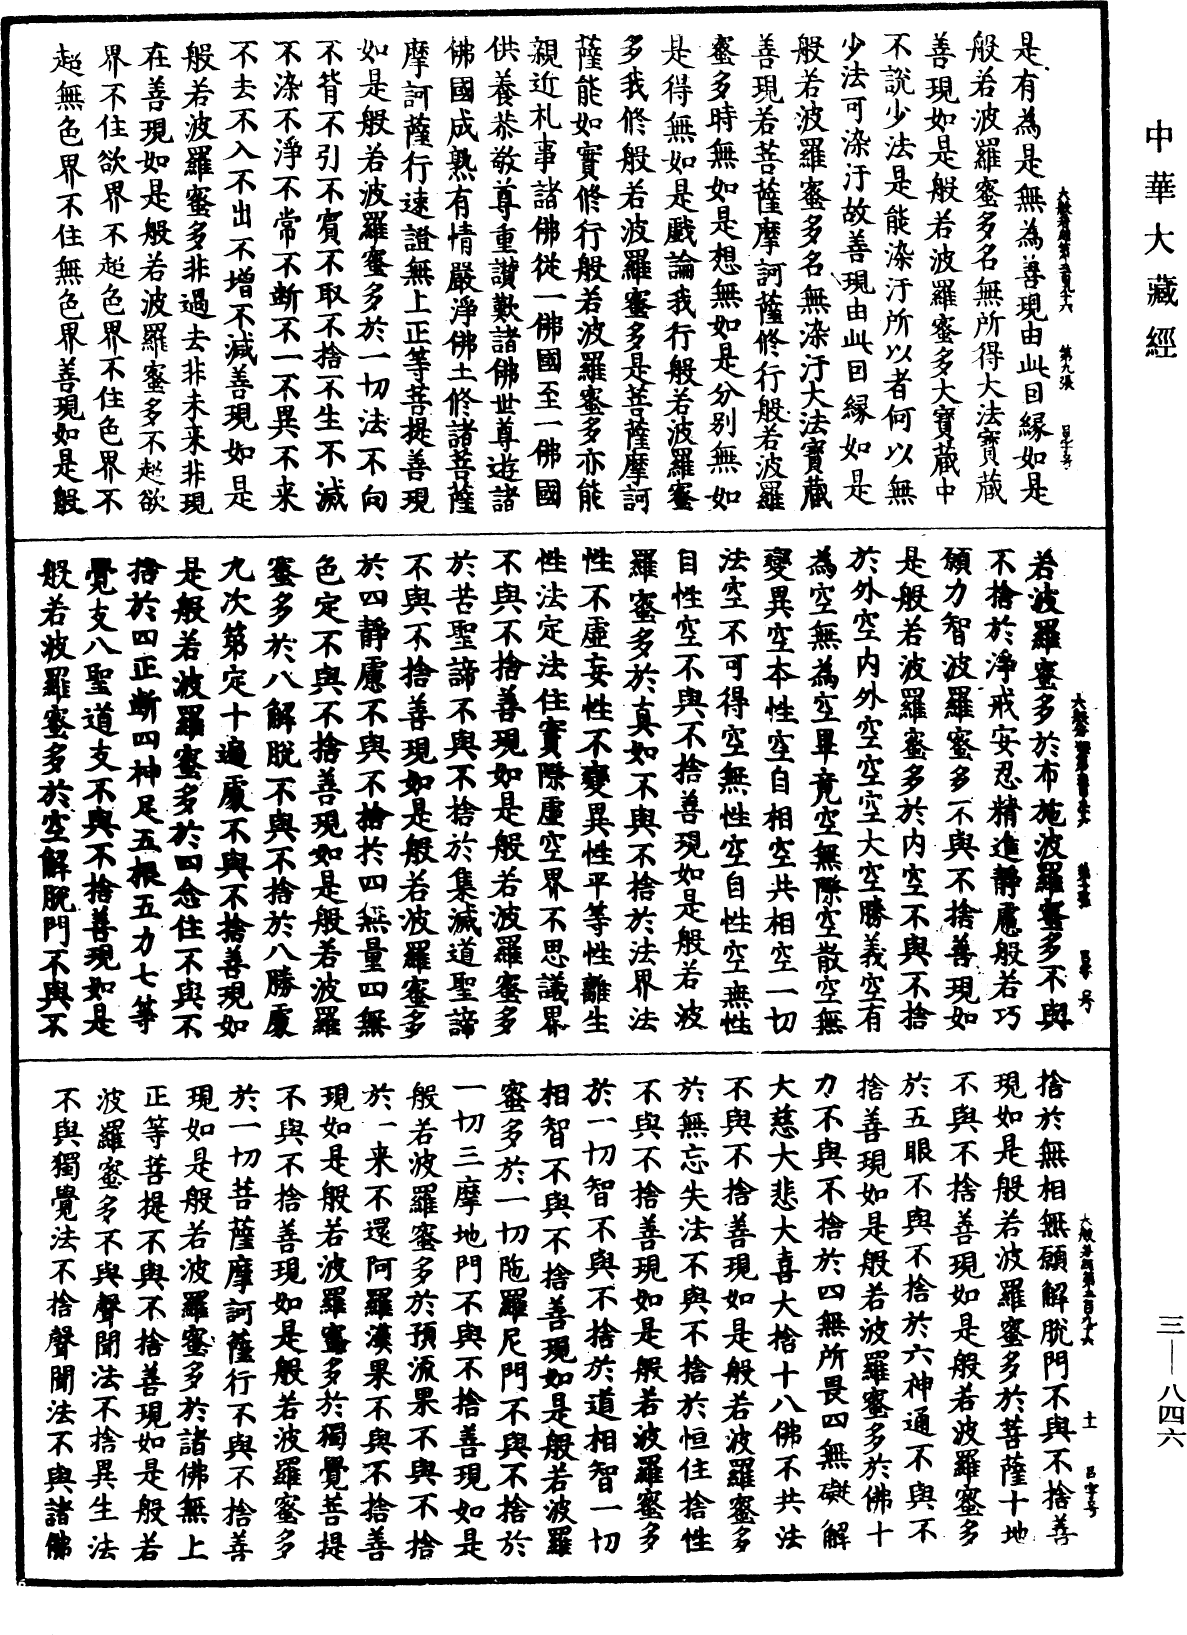 中華大藏經
三—八四六
是有為是無為善現由此因緣如是
般若波羅蜜多名無所得大法寶藏
善現如是般若波羅蜜多大寶藏中
不說少法是能染汙所以者何以無
少法可染汙故善現由此因緣如是
般若波羅蜜多名無染汙大法寶藏
善現若菩薩摩訶薩修行般若波羅
蜜多時無如是想無如是分別無如
是得無如是戲論我行般若波羅蜜
多我修般若波羅蜜多是菩薩摩訶
薩能如實修行般若波羅蜜多亦能
親近礼事諸佛從一佛國至一佛國
供養恭敬尊重讚歎諸佛世尊遊諸
佛國成熟有情嚴淨佛土修諸菩薩
摩訶薩行速證無上正等菩提善現
如是般若波羅蜜多於一切法不向
不背不引不賓不取不捨不生不滅
不染不淨不常不斷不一不異不來
不去不入不出不增不減善現如是
般若波羅蜜多非過去非未來非現
在善現如是般若波羅蜜多不超欲
界不住欲界不超色界不住色界不
超無色界不住無色界善現如是般
若波羅蜜多於布施波羅蜜多不與
不捨於淨戒安忍精進靜慮般若巧
願力智波羅蜜多不與不捨善現如
是般若波羅蜜多於內空不與不捨
於外空內外空空空大空勝義空有
為空無為空畢竟空無際空散空無
變異空本性空自相空共相空一切
法空不可得空無性空自性空無性
自性空不與不捨善現如是般若波
羅蜜多於真如不與不捨於法界法
性不虛妄性不變異性平等性離生
性法定法住實際虛空界不思議界
不與不捨善現如是般若波羅蜜多
於苦聖諦不與不捨於集滅道聖諦
不與不捨善現如是般若波羅蜜多
於四靜慮不與不捨於四無量四無
色定不與不捨善現如是般若波羅
蜜多於八解脫不與不捨於八勝處
九次第定十遍處不與不捨善現如
是般若波羅蜜多於四念住不與不
捨於四正斷四神足五根五力七等
覺支八聖道支不與不捨善現如是
般若波羅蜜多於空解脫門不與不
捨於無相無願解脫門不與不捨善
現如是般若波羅蜜多於菩薩十地
不與不捨善現如是般若波羅蜜多
於五眼不與不捨於六神通不與不
捨善現如是般若波羅蜜多於佛十
力不與不捨於四無所畏四無礙解
大慈大悲大喜大捨十八佛不共法
不與不捨善現如是般若波羅蜜多
於無忘失法不與不捨於恒住捨性
不與不捨善現如是般若波羅蜜多
於一切智不與不捨於道相智一切
相智不與不捨善現如是般若波羅
蜜多於一切陁羅尼門不與不捨於
一切三摩地門不與不捨善現如是
般若波羅蜜多於預流果不與不捨
於一來不還阿羅漢果不與不捨善
現如是般若波羅蜜多於獨覺菩提
不與不捨善現如是般若波羅蜜多
於一切菩薩摩訶薩行不與不捨善
現如是般若波羅蜜多於諸佛無上
正等菩提不與不捨善現如是般若
波羅蜜多不與聲聞法不捨異生法
不與獨覺法不捨聲聞法不與諸佛